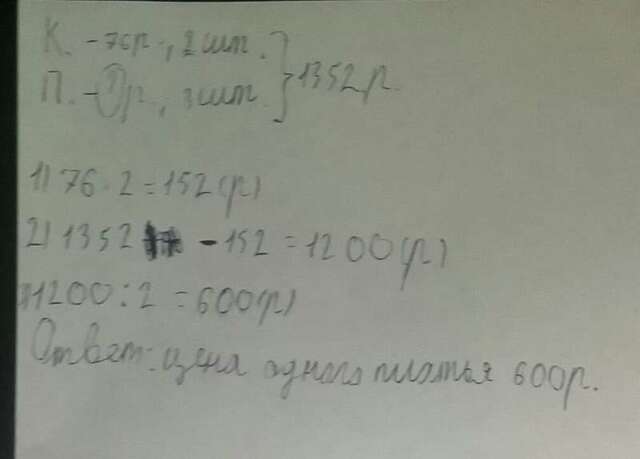 К. - 76р., 2 шт.
П. - ?р., 3 шт. } 1352р.
1) 76 · 2 = 152(р)
2) 1352 - 152 = 1200(р)
3) 1200 : 2 = 600(р)
Ответ: цена одного платья 600р.